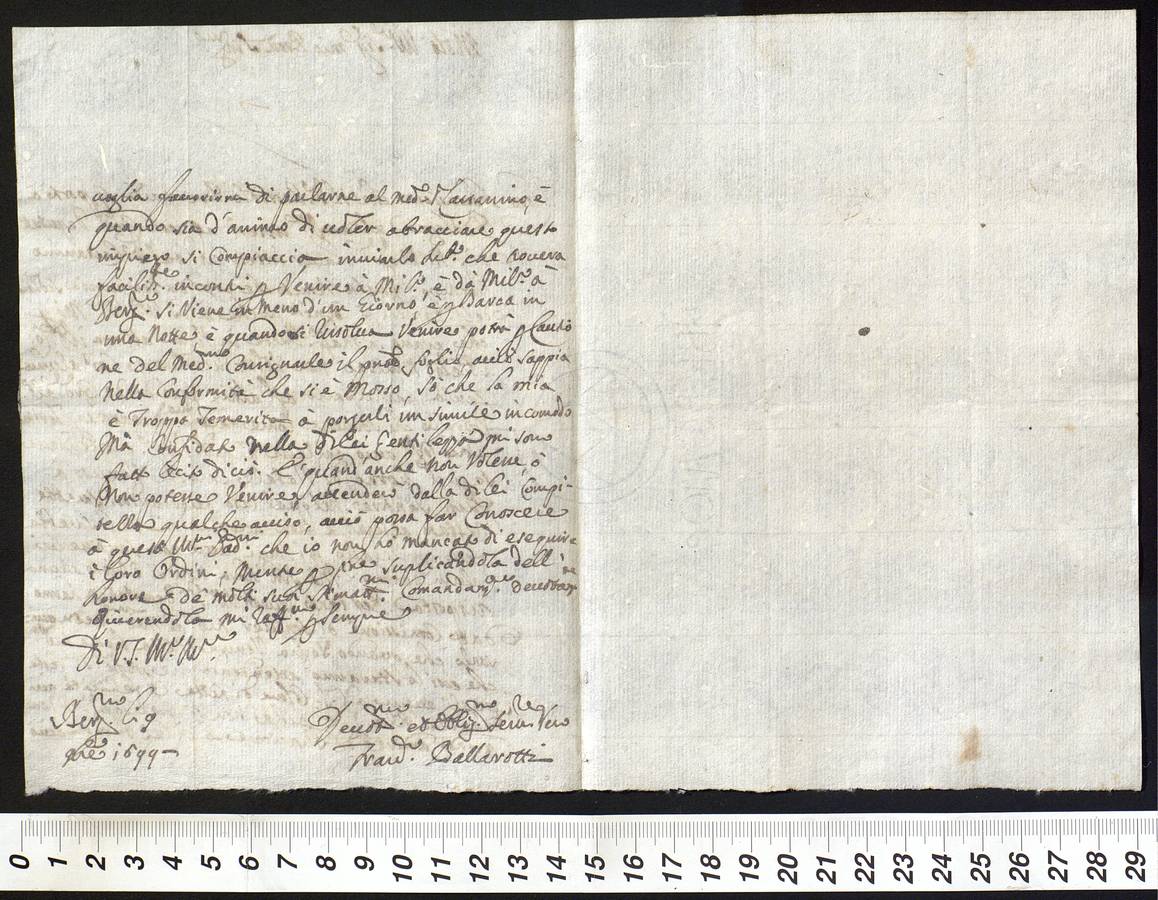 uoglia fauorirmi di parlarne al med.º è
quando sia d'animo di uoler abracciare questo
impiego si Compiaccia inuiarlo che trouerà
facilm.te incontri p Venire à Mil.º, è dà Mil.º à
Berg.mo si Viene in meno d'un Giorno è p Barca in
una Notte è quando si risolua Venire potrà p Cautio
ne del Med.mo Consignarle il foglio acciò sappia
nella Conformità che si è Mosso, sò che la mia
è Troppa Temerità à porgerli un simile incomodo
Mà Confidato nella di lei gentilezza mi sono
fatto lecito di ciò. E quand'anche non Volesse, ò
Non potesse Venire attenderò dalla di lei Compi-
tella qualche auiso, acciò possa far Conoscere
à questi che io non hò mancato di eseguire
i loro Ordini, Mentre p fine suplicandola dell'
honore de molti suoi Comandam.
Riuerendola mi raff.mo p sempre
Di V.S. M.to
Berg.mo li 9
9bre 1699
Deuot.mo et Oblig.mo Seru.re Vero
Franc.º Ballarotti